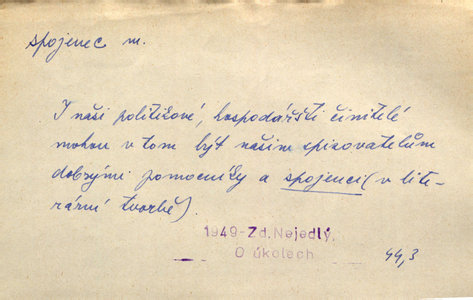 spojenec m.
I naši politikové, hospodářští činitelé
mohou v tom být našim spisovatelům
dobrými pomocníky a spojenci (v lite-
rární tvorbě).
1949-Zd. Nejedlý,
O úkolech
44,3